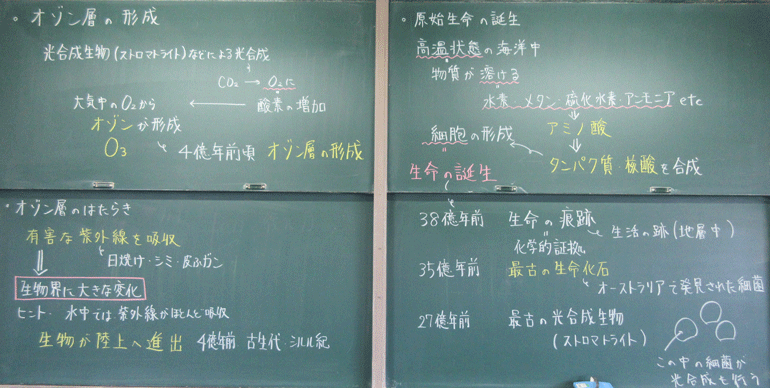 。オゾン層の形成
光合成生物(ストロマトライト)などによる光合成
CO₂ → O₂に
大気中のO₂から ← 酸素の増加
オゾンが形成
O₃ 4億年前頃 オゾン層の形成
・オゾン層のはたらき
有害な紫外線を吸収
日焼け・シミ・皮ふガン
⇓
生物界に大きな変化
ヒント・ 水中では紫外線がほとんど吸収
生物が陸上へ進出 4億年前 古生代・シルル紀
。原始生命の誕生
高温状態の海洋中
物質が溶ける
水素・メタン・硫化水素・アンモニア etc
⇓
アミノ酸
⇓
細胞の形成 ← タンパク質・核酸を合成
〃
生命の誕生
38億年前 生命の痕跡 生活の跡(地層中)
化学的証拠
35億年前 最古の生命化石
オーストラリアで発見された細菌
27億年前 最古の光合成生物
(ストロマトライト)
この中の細菌が
光合成を行う